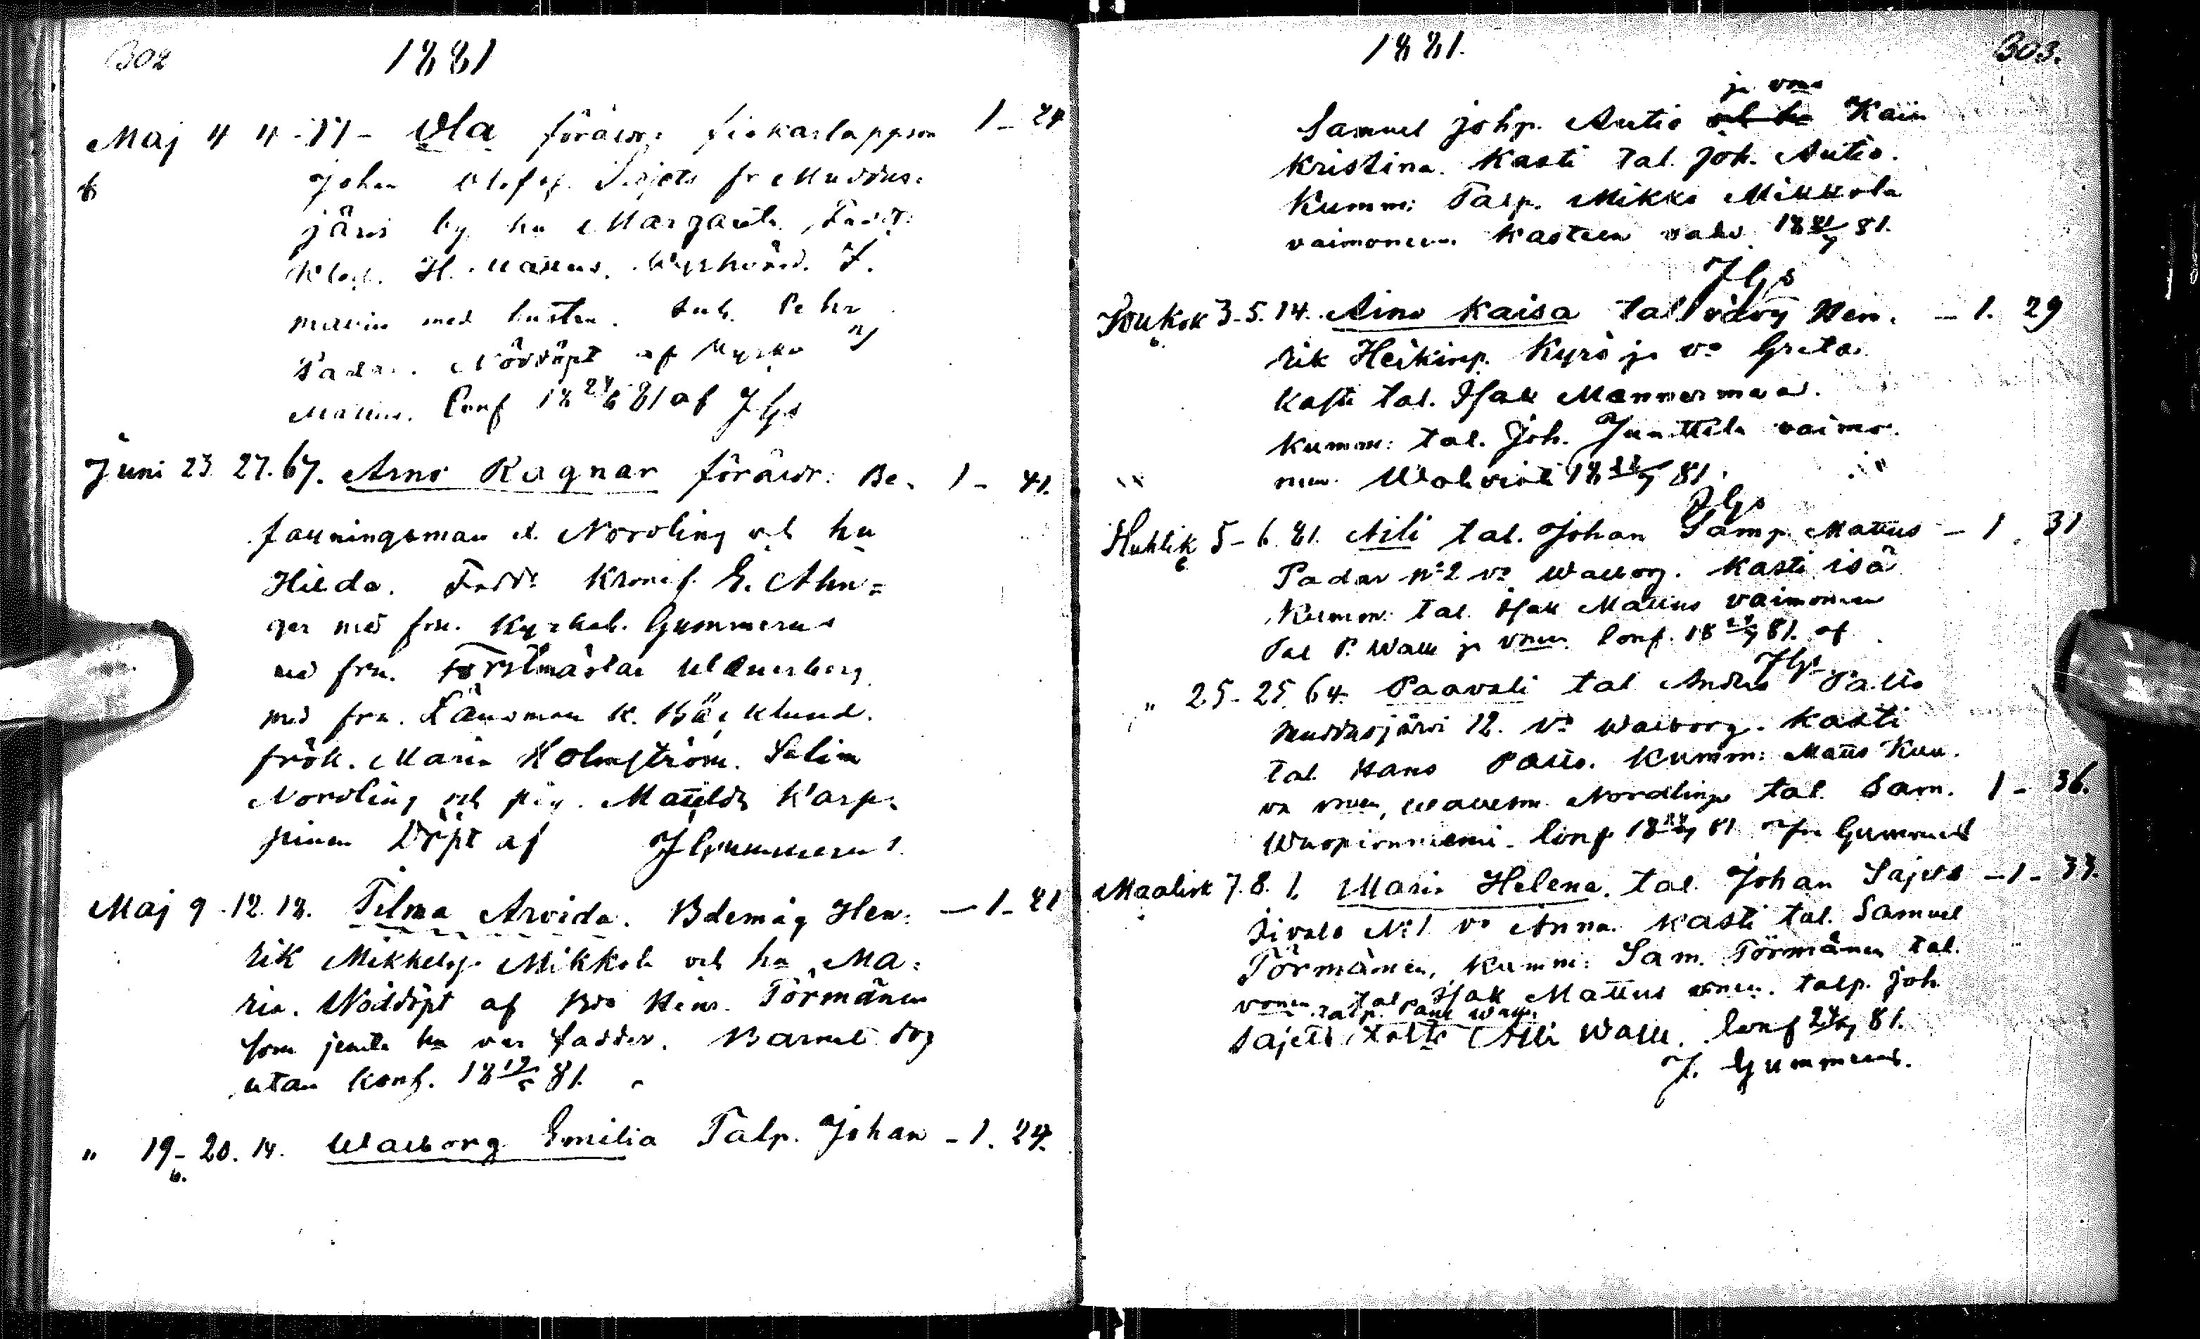 302
1881
Maj 4 4 - 77 - Ola föräldr: fiskarlappen 1 - 24
Johan Olofsf. Sajets fr Muddus:
järvi by hu Margareta, Fadd:
Klock. H. Mattus. Kyrkvärd. J.
med hustru. Pehr
Padar. Nöddöpt af Kyrkv
Mattus. Conf 18 24/6 81 af JGs
Juni 23. 27. 67. Arno Ragnar föräldr: Be- 1 - 41.
fallningsman A. Nordling och hu
Hilda. Fadd: Kronof. E. Ahn=
ger med fru. Kyrkoh. Gummerus
med fru. Forstmästar Waenerberg
med fru. Länsman K. Bäcklund.
frök. Maria Holmström. Selim
Nordling och pig. Matilda Karp=
pinen Döpt af JGummerus.
Maj 9 - 12. 18. Tilma Arvida. Bdemåg Hen: - 1 - 21
rik Mikkelsf. Mikkola och hu Ma:
ria. Nöddöpt af Bde Henr. Törmänen
som jemte hu var fadder. Barnet dog
utan konf. 18 81.
" 19 - 20. 14. Walborg Emilia Talp. Johan - 1. 24.
1881.
303.
ja vmo
Samuel Johp. Autio och hu Kaisa
Kristina. Kasti tal. Joh. Autio.
Kumm: Talp. Mikko Mikkola
vaimoneen. Kasteen vahv. 18 81.
JGs
Toukok 3 - 5. 14. Aino Kaisa tal vävy Hen: - 1. 29
rik Heikinp. Kyrö ja vo Greta.
Kasti tal. Isak Mannermaa.
Kumm: tal. Joh. Junttila vaimo-
neen. Wahvist 18 81.
JGs
Huhtik 5 - 6. 81. Aili tal. Johan Samp. Mattus - 1. 31
Padar No 2 vo Walborg. Kasti isä
Kumm: tal. Isak Mattus vaimoneen
Tal P. Walle ja vneen. Conf. 18 81. af
JGs
" 25 - 25. 64. Paavali tal Anders Palto
Muddusjärvi 12. vo Walborg. Kasti
tal Hans Palto. Kumm: Matts Kuu-
va vneen, Nordling tal. Sam. 1 - 36.
Wuopionniemi. Conf 18 81 Gummerus
Maalisk 7. 8. 1. Maria Helena. tal. Johan Sajets - 1 - 33.
Iivalo No 1 vo Anna. Kasti tal. Samuel
Törmänen, Kumm: Sam. Törmänen tal.
vonen. talp Isak Mattus vneen. talp. Joh
talp. Paul Walle
Sajets Aili Walle. Conf 81.
J. Gummerus.